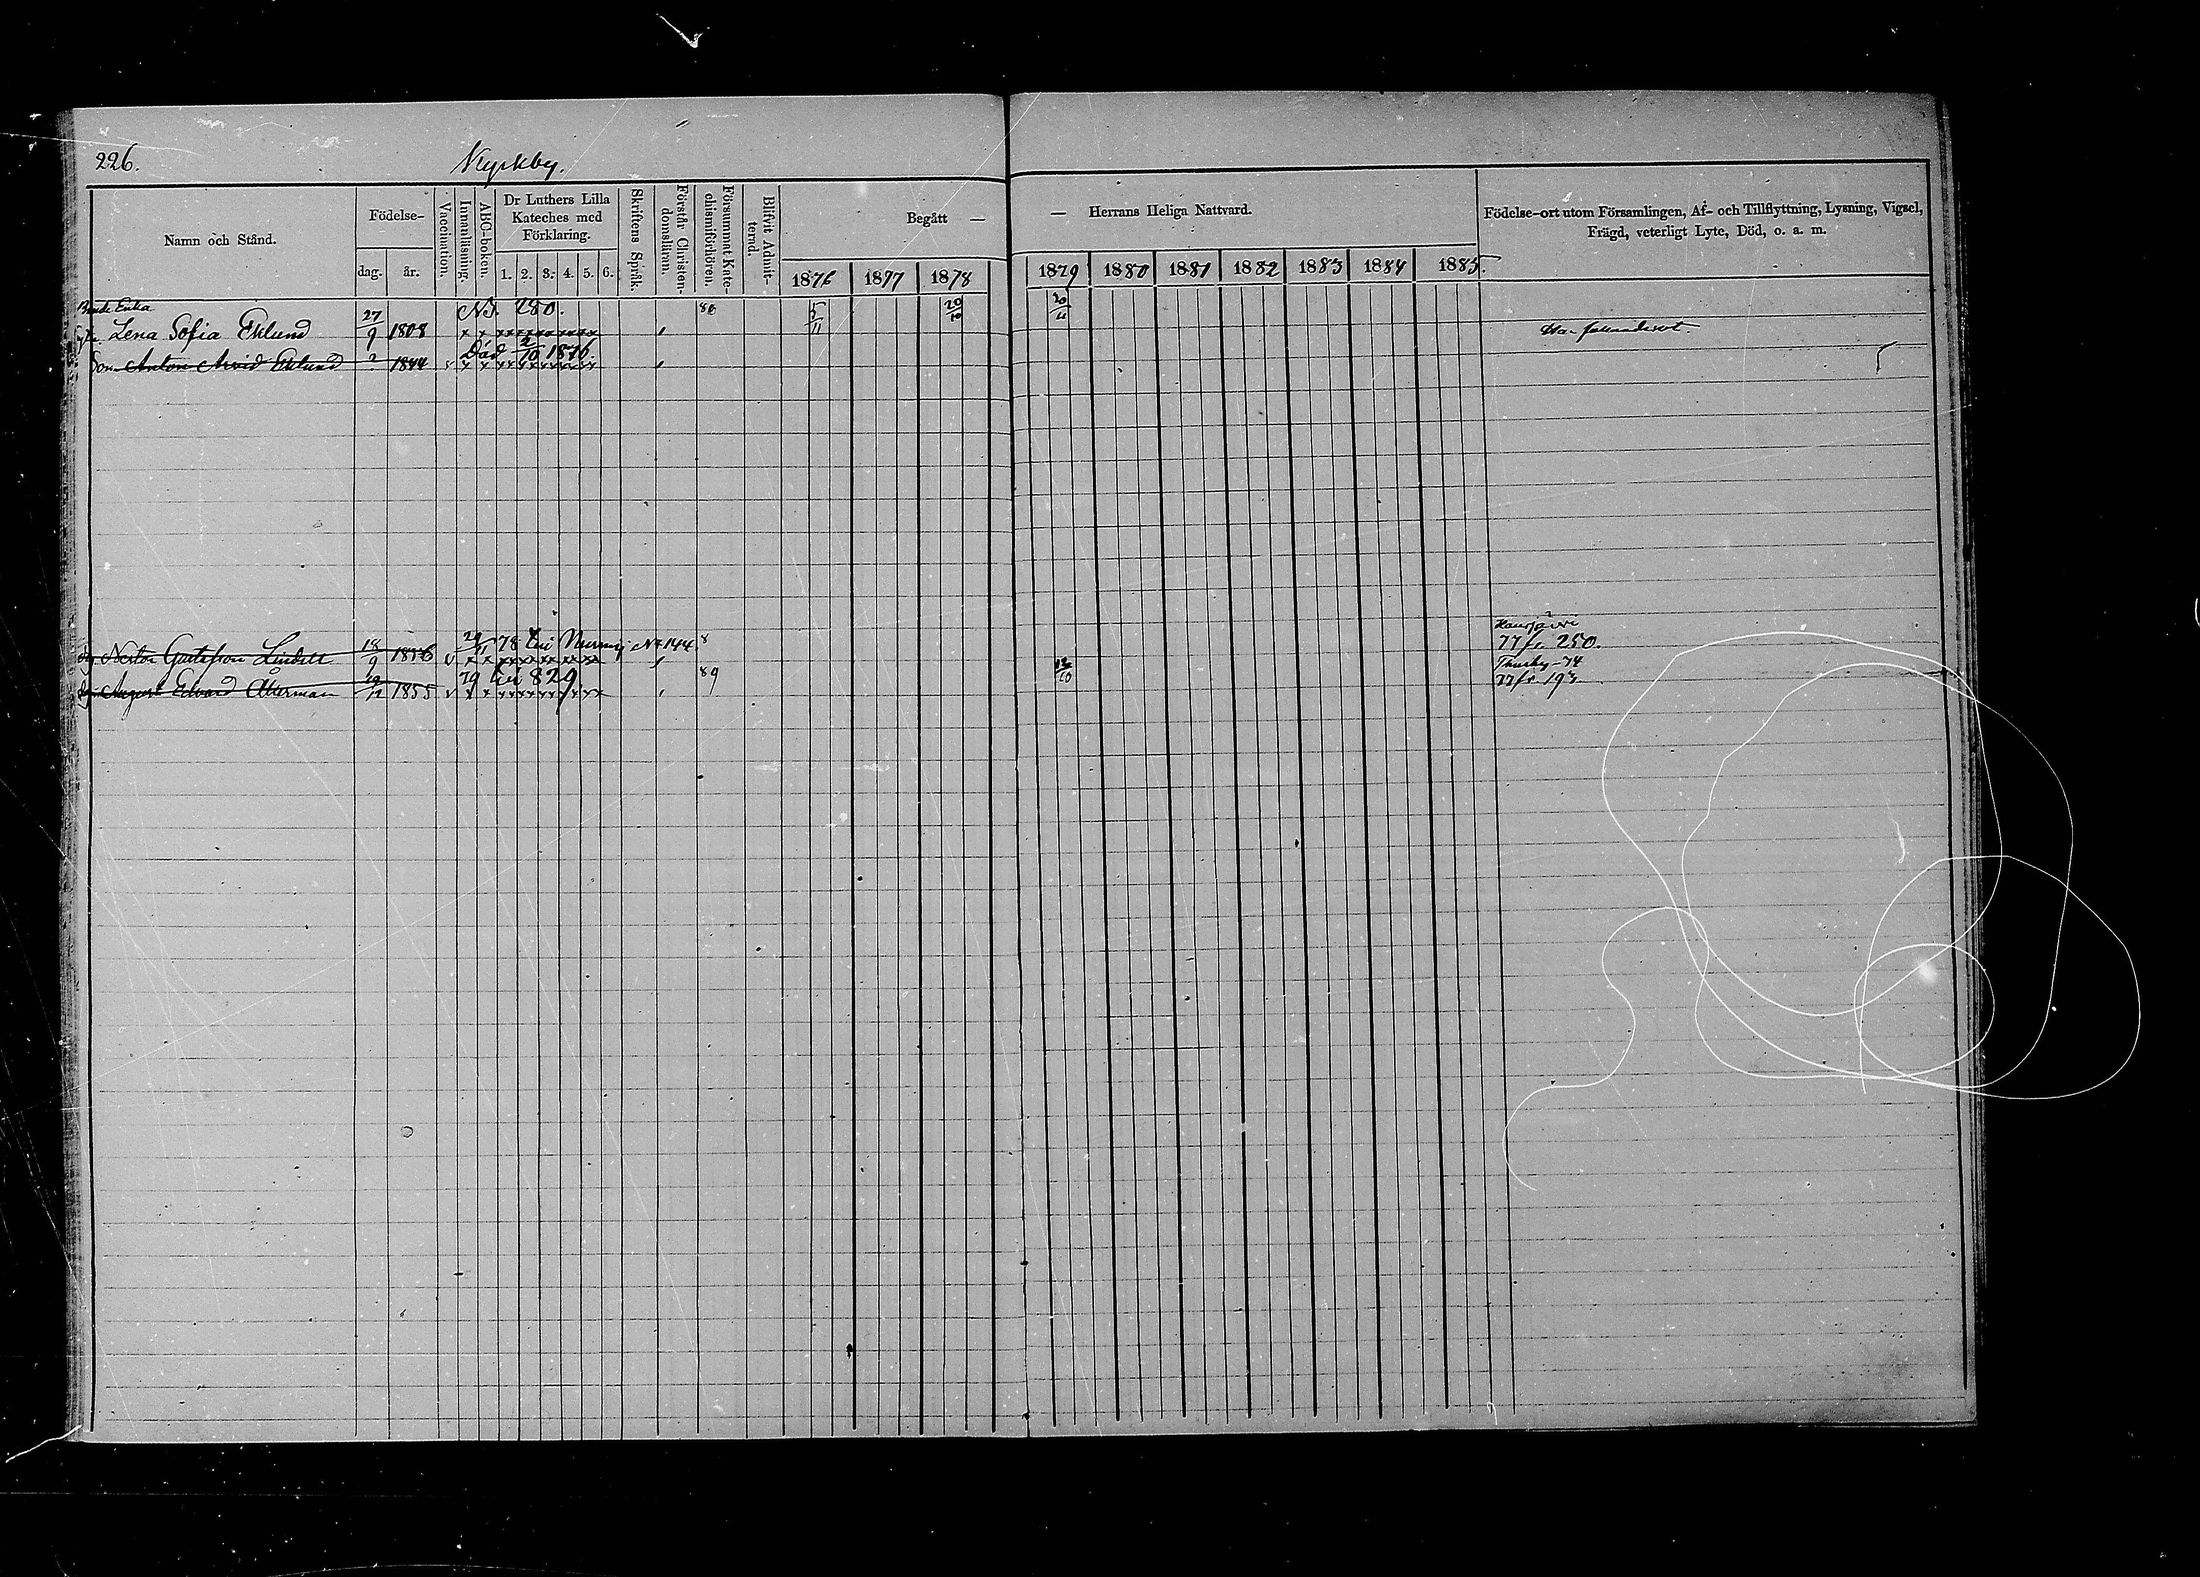 226.
Kyrkby.
Namn och Stånd.
Födelse-
dag.
år.
Vaccination.
Innanläsning.
ABC-boken.
Dr Luthers Lilla
Kateches med
Förklaring.
1. 2. 3. 4. 5. 6.
Skriftens Språk.
Förstår Christen-
domsläran.
Försummat Kate-
chismiförhören.
Blifvit Admit-
terad.
Begått —
1876 1877 1878
— Herrans Heliga Nattvard.
1879 1880 1881 1882 1883 1884 1885.
Födelse-ort utom Församlingen, Af- och Tillflyttning, Lysning, Vigsel,
Frägd, veterligt Lyte, Död, o. a. m.
Enka
Lena Sofia Eklund 27/9 1808 x x xxxxxxxxxxxx
280. 5/11 20/10
Son Anton Arvid Eklund ? 1844 v x x
Död 2/10 1876.
Nestor Gustafson Lindell 18/9 1856 v x x
78 Nurmij. 144 8
77 fr. 250.
August Edvard Åkerman /12 1855 v x x
79 829 89 12/10
Thusby-74
77 fr. 193.